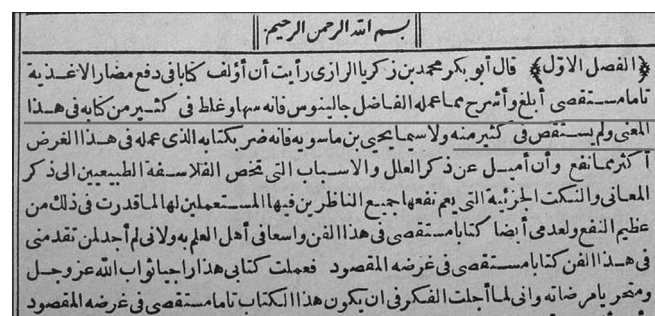 بسم الله الرحمن الرحيم
﴿الفصل الاوّل﴾ قال أبو بكر محمد بن زكريا الرازى رأيت أن أؤلف كتابا فى دفع مضار الاغذية
تاما مستقصى أبلغ وأشرح مما عمله الفاضل جالينوس فانه سها وغلط فى كثير من كتابه فى هذا
المعنى ولم يستقص فى كثير منه ولاسيما يحيى بن ماسويه فانه ضر بكتابه الذى عمله فى هذا الغرض
أكثر مما نفع وأن أميل عن ذكر العلل والاسباب التى تخص الفلاسفة الطبيعيين الى ذكر
المعانى والنكت الجزئية التى يعم نفعها جميع الناظرين فيها المستعملين لها لما قدرت فى ذلك من
عظيم النفع ولعدمى أيضا كتابا مستقصى فى هذا الفن واسعا فى أهل العلم به ولانى لم أجد لمن تقدمنى
فى هذا الفن كتابا مستقصى فى غرضه المقصود فعملت كتابى هذا راجيا ثواب الله عز وجل
ومتحريا مرضاته وانى لما أجلت الفكر فى ان يكون هذا الكتاب تاما مستقصى فى غرضه المقصود